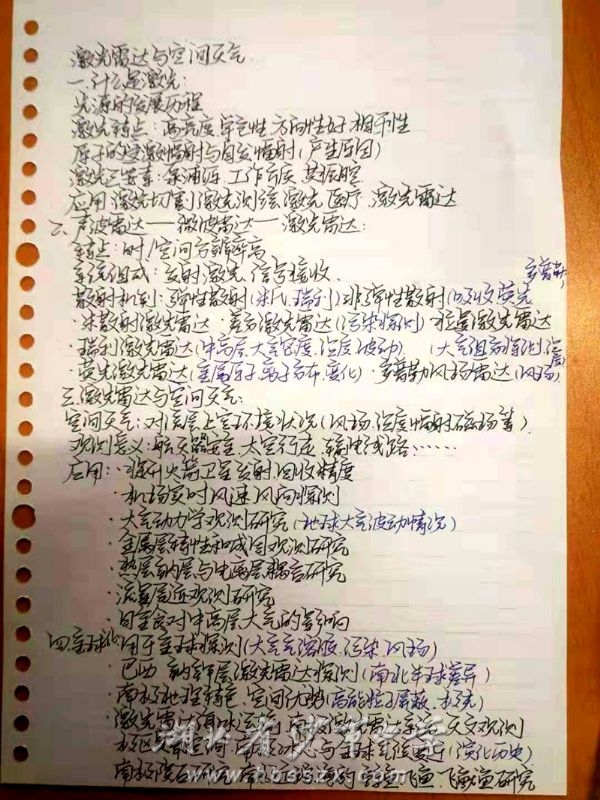 激光雷达与空间天气
一.什么是激光:
光源的发展历程
激光特点:高亮度 单色性 方向性好 相干性
原子的受激辐射与自发辐射(产生原因)
激光三要素:泵浦源 工作介质 共振腔
应用 激光切割 激光测绘 激光医疗 激光雷达
二.声波雷达——微波雷达——激光雷达:
特点:时/空间分辨率高
系统组成:发射激光 信号接收
多普勒
散射机制:弹性散射(米氏.瑞利)非弹性散射(吸收荧光
·米散射激光雷达·差分激光雷达(污染探测) 拉曼激光雷达
·瑞利激光雷达(中高层大气密度.温度.波动) (大气组分探化 温度)
·荧光激光雷达(金属原子.离子分布.变化)·多普勒风场雷达(风场)
三.激光雷达与空间天气:
空间天气:对流层上空环境状况(风场 温度 辐射 磁场等)
观测意义:航天器安全 太空行走 输电线路……
应用:·提升火箭卫星发射回收精度
·机场实时风速风向探测
·大气动力学观测研究(地球大气波动情况)
·金属层特性和成因观测研究
·热层钠层与电离层耦合研究
·流星尾迹观测研究
·日全食对中高层大气的影响
四.全球化 用于全球探测(大气气溶胶.污染.风场)
·巴西 钠钾层激光雷达探测(南北半球差异)
·南极地理特色 空间优势(高能粒子屏蔽.极光)
·激光雷达 南极 南极激光雷达 天文观测
南极冰芯与全球气候变化(演化历史)
南极陨石研究 南极 研究
湖北省少年儿童
www.hbssz.com